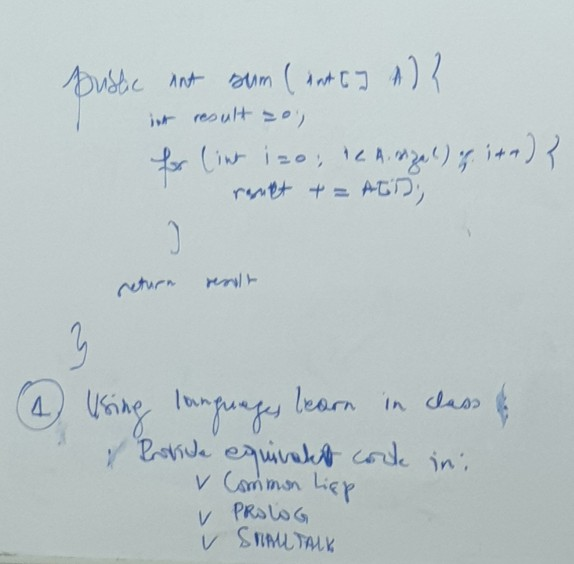 public int sum ( int [] A ) {
int result = 0;
for ( int i=0 ; i < A.size() ; i++ ) {
result += A[i];
}
return result
}
1 Using languages learn in class
Provide equivalent code in:
✓ Common Lisp
✓ PROLOG
✓ SMALLTALK